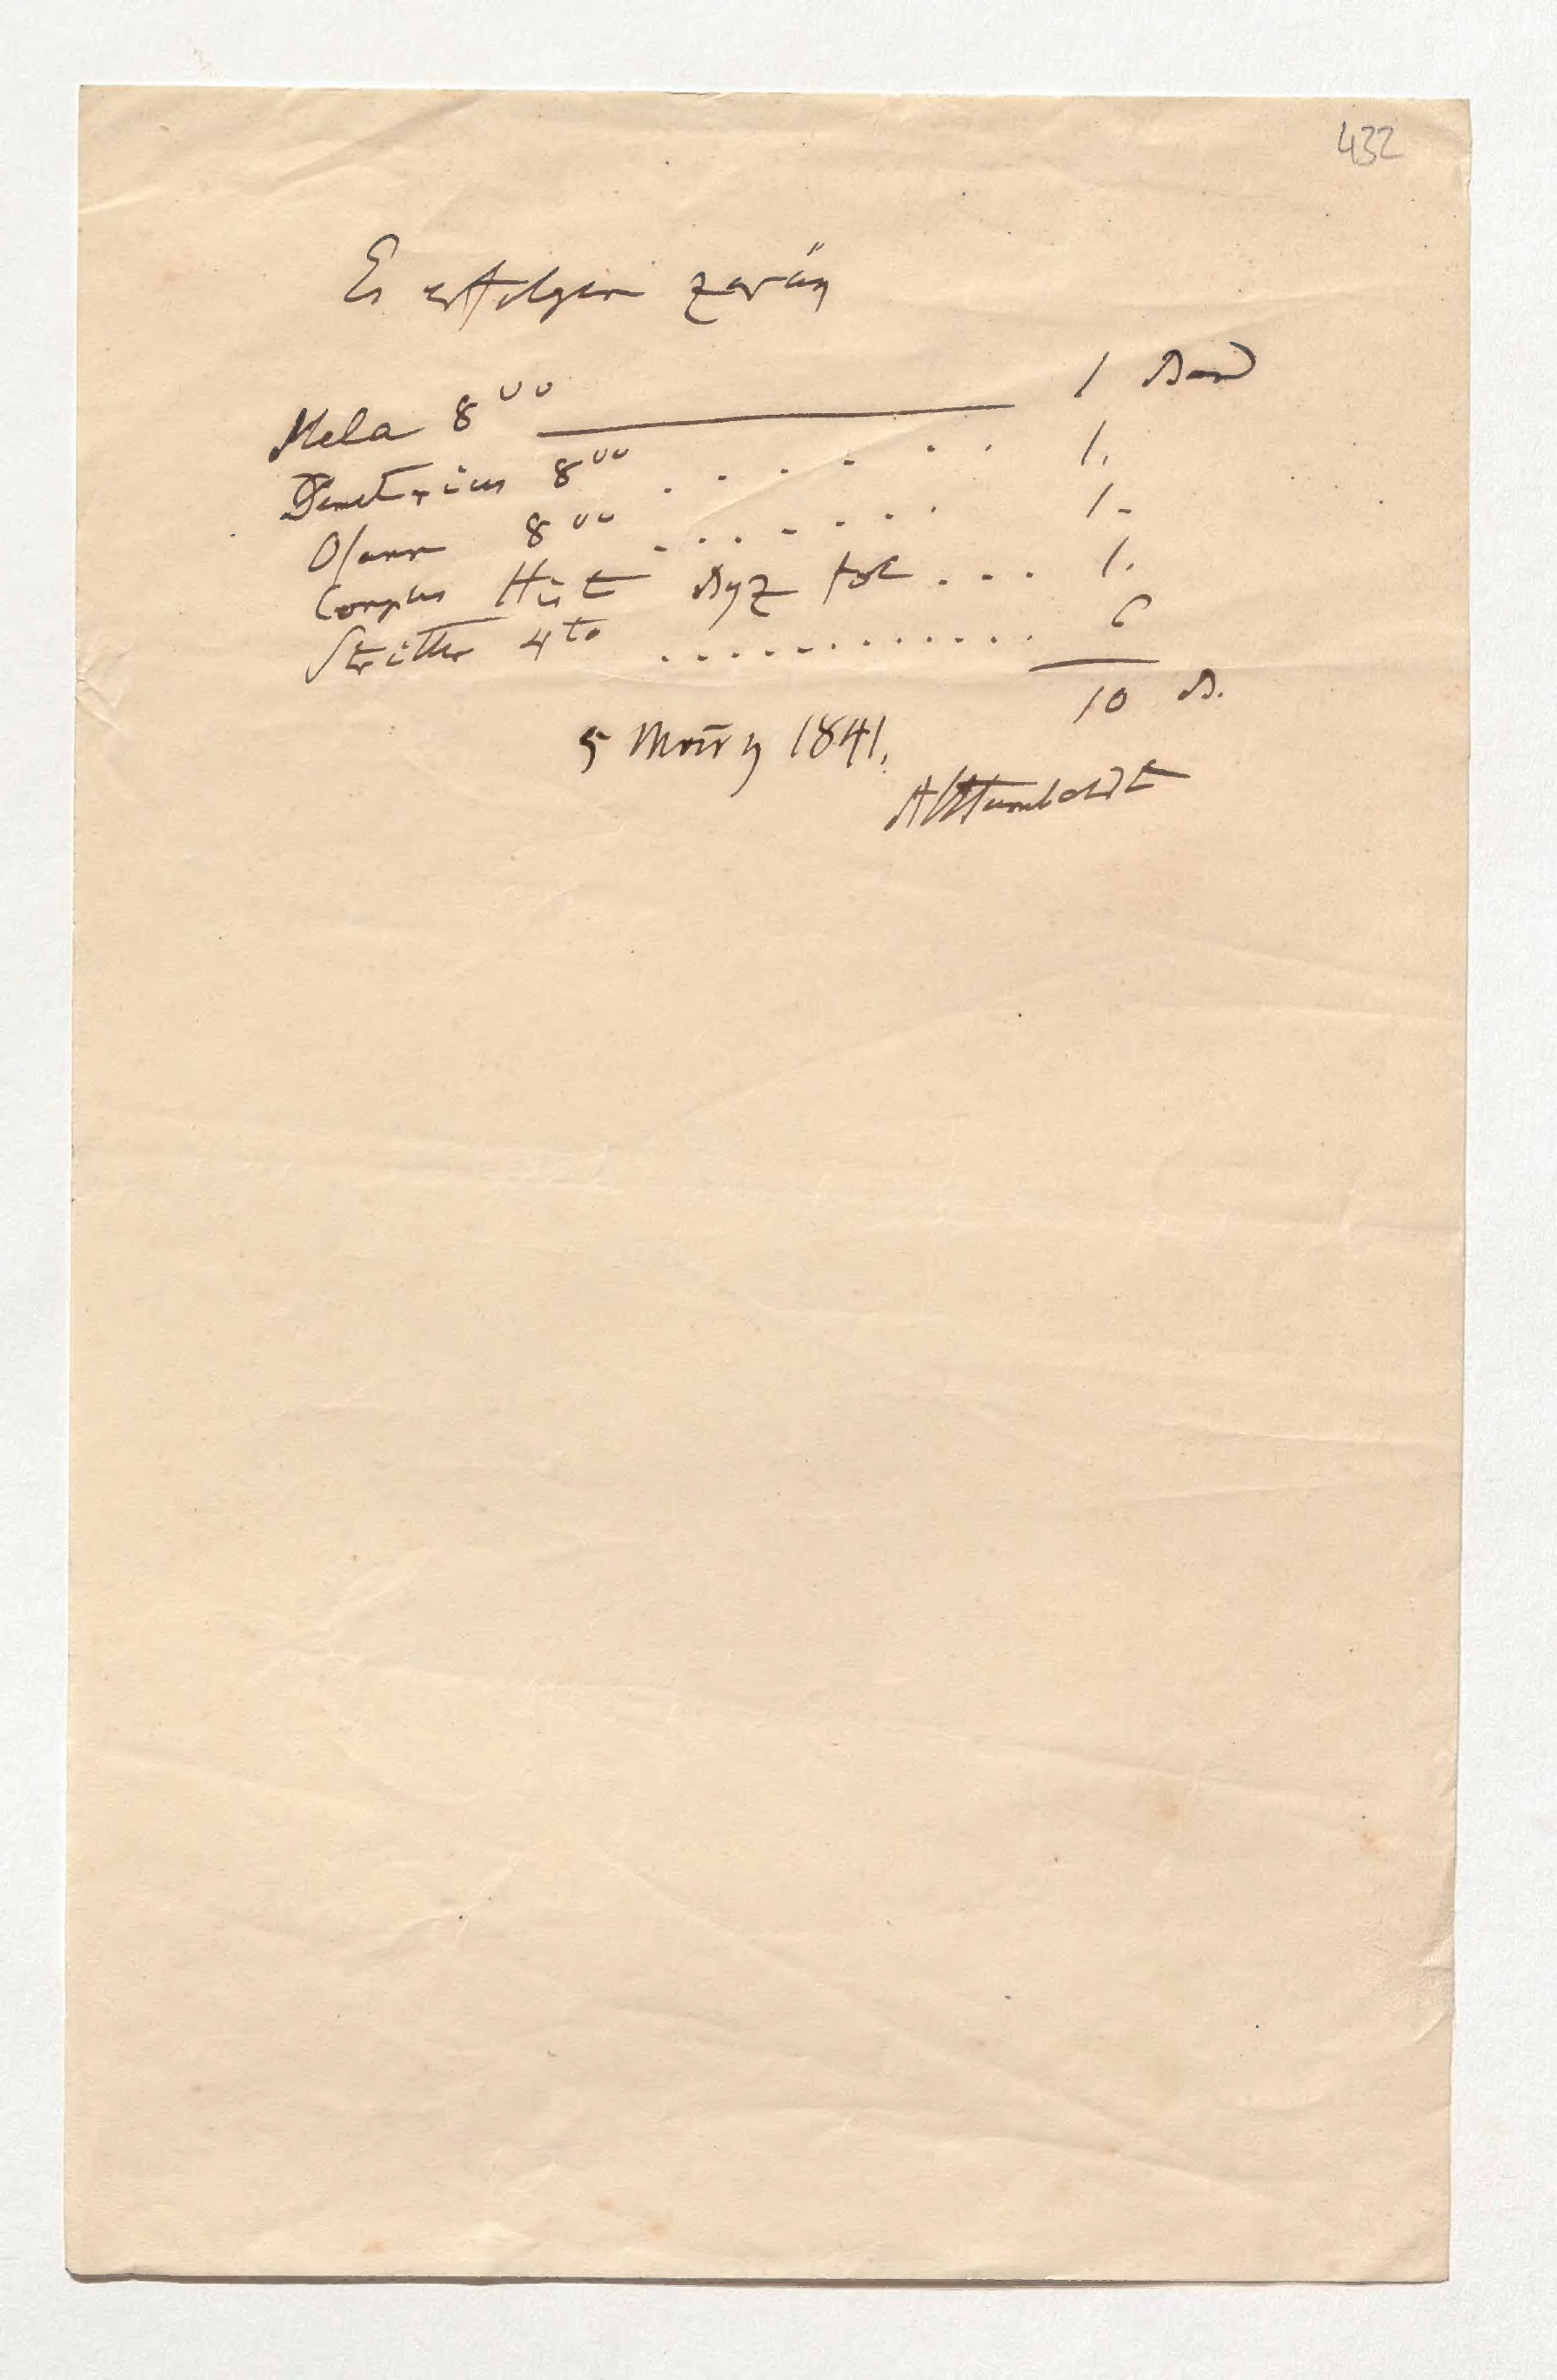 432
Es erfolgen zurük
Mela 8vo ——— 1 Band
Demetrius 8vo . . . . . . 1.
Osann 8vo . . . . . . . 1-
Corpus Hist Byz fol . . . 1.
Stritter 4to . . . . . . . . . . . . 6
10 B.
5 März 1841.
AlHumboldt